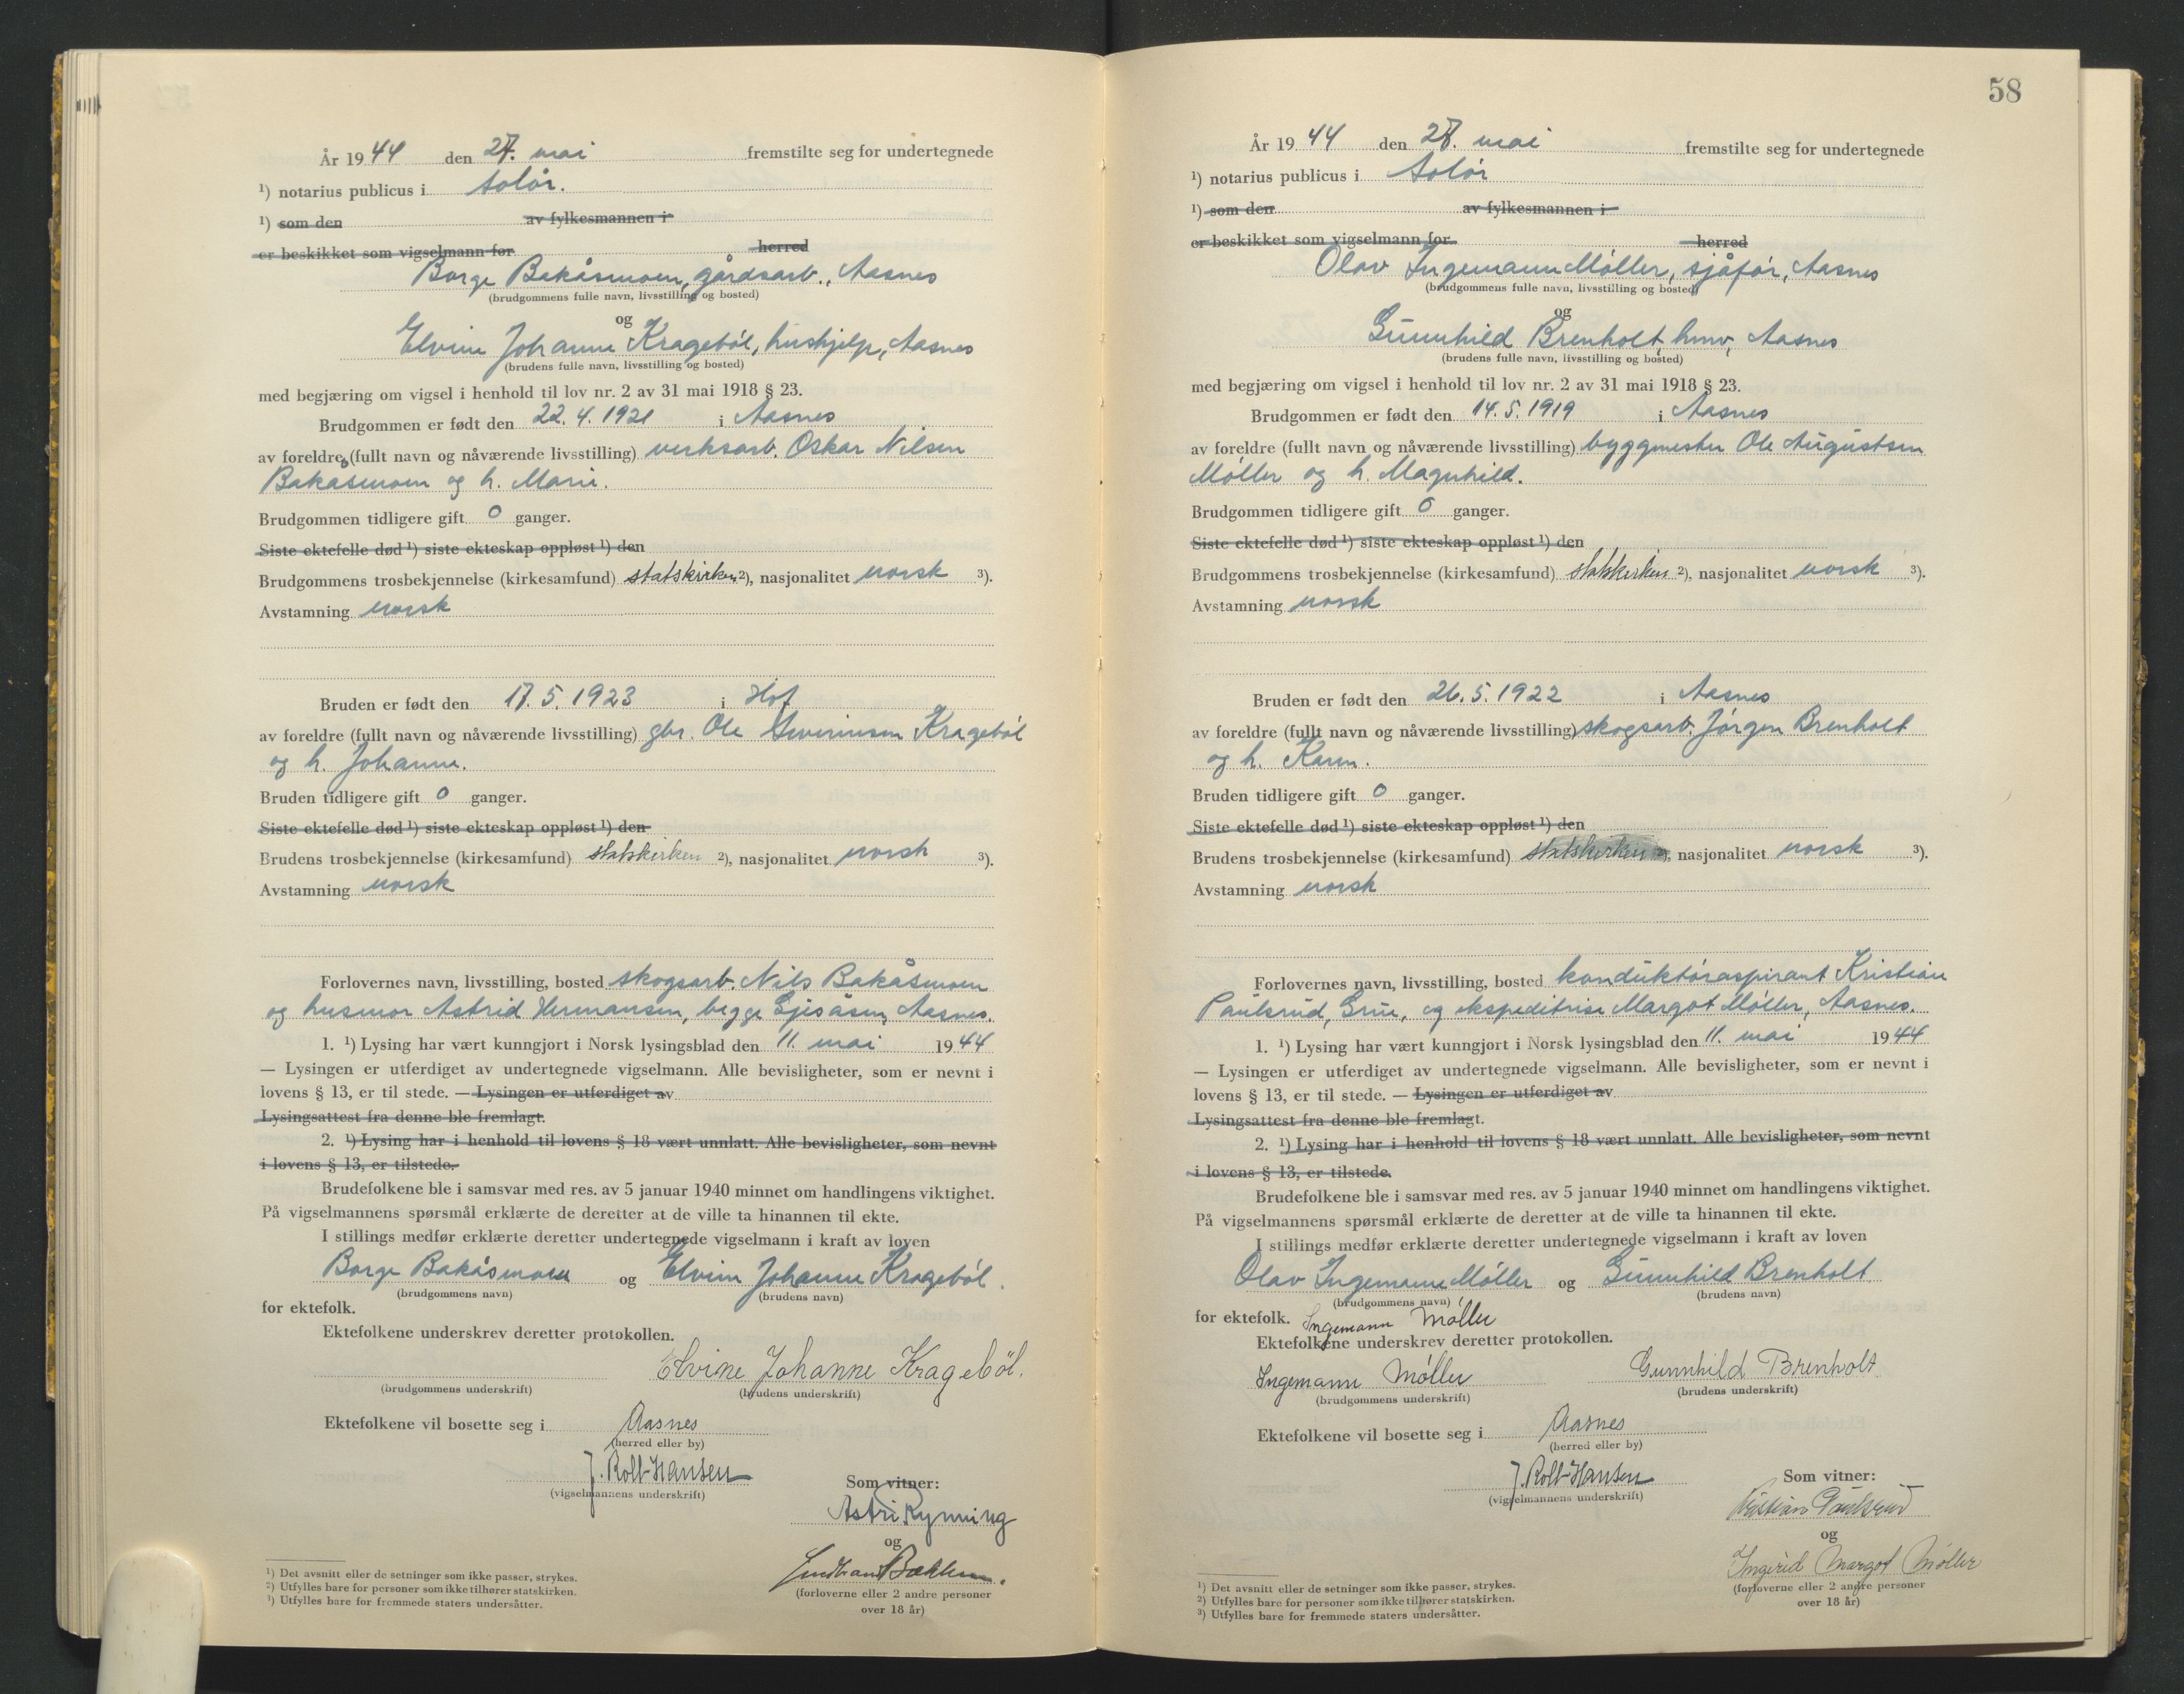 År 19 44 den 27. mai fremstilte seg for undertegnede
¹) notarius publicus i Solør.
¹) som den av fylkesmannen i
er beskikket som vigselmann for herred
Borge Bakåsmoen, gårdsarb., Aasnes
(brudgommens fulle navn, livsstilling og bosted)
og
Elvine Johanne Kragebøl, hushjelp, Aasnes
(brudens fulle navn, livsstilling og bosted)
med begjæring om vigsel i henhold til lov nr. 2 av 31 mai 1918 § 23.
Brudgommen er født den 22. 4. 1921 i Aasnes
av foreldre (fullt navn og nåværende livsstilling) verksarb. Oskar Nilsen
Bakåsmoen og h. Marie.
Brudgommen tidligere gift 0 ganger.
Siste ektefelle død ¹) siste ekteskap oppløst ¹) den
Brudgommens trosbekjennelse (kirkesamfund) statskirken ²), nasjonalitet norsk ³).
Avstamning norsk
Bruden er født den 17. 5. 1923 i Hof
av foreldre (fullt navn og nåværende livsstilling) gbr. Ole Severinsen Kragebøl
og h. Johanne.
Bruden tidligere gift 0 ganger.
Siste ektefelle død ¹) siste ekteskap oppløst ¹) den
Brudens trosbekjennelse (kirkesamfund) statskirken ²), nasjonalitet norsk ³).
Avstamning norsk
Forlovernes navn, livsstilling, bosted skogsarb. Nils Bakåsmoen
og husmor Astrid Hermansen, begge Gjesåsen, Aasnes.
1. ¹) Lysing har vært kunngjort i Norsk lysingsblad den 11. mai 19 44
— Lysingen er utferdiget av undertegnede vigselmann. Alle bevisligheter, som er nevnt i
lovens § 13, er til stede. — Lysingen er utferdiget av
Lysingsattest fra denne ble fremlagt.
2. ¹) Lysing har i henhold til lovens § 18 vært unnlatt. Alle bevisligheter, som nevnt
i lovens § 13, er tilstede.
Brudefolkene ble i samsvar med res. av 5 januar 1940 minnet om handlingens viktighet.
På vigselmannens spørsmål erklærte de deretter at de ville ta hinannen til ekte.
I stillings medfør erklærte deretter undertegnede vigselmann i kraft av loven
Borge Bakåsmoen og Elvine Johanne Kragebøl.
(brudgommens navn) (brudens navn)
for ektefolk.
Ektefolkene underskrev deretter protokollen.
Elvine Johanne Kragebøl.
(brudgommens underskrift) (brudens underskrift)
Ektefolkene vil bosette seg i Aasnes
(herred eller by)
J. Roll-Hansen
(vigselmannens underskrift)
Som vitner:
Astri Rynning
og
(forloverne eller 2 andre personer
over 18 år)
¹) Det avsnitt eller de setninger som ikke passer, strykes.
²) Utfylles bare for personer som ikke tilhører statskirken.
³) Utfylles bare for fremmede staters undersåtter.
58
År 19 44 den 28. mai fremstilte seg for undertegnede
¹) notarius publicus i Solør
¹) som den av fylkesmannen i
er beskikket som vigselmann for herred
Olav Ingemann Møller, sjåfør, Aasnes
(brudgommens fulle navn, livsstilling og bosted)
og
Gunnhild Brenholt, hmv, Aasnes
(brudens fulle navn, livsstilling og bosted)
med begjæring om vigsel i henhold til lov nr. 2 av 31 mai 1918 § 23.
Brudgommen er født den 14. 5. 1919 i Aasnes
av foreldre (fullt navn og nåværende livsstilling) byggmester Ole Augustsen
Møller og h. Magnhild.
Brudgommen tidligere gift 0 ganger.
Siste ektefelle død ¹) siste ekteskap oppløst ¹) den
Brudgommens trosbekjennelse (kirkesamfund) statskirken ²), nasjonalitet norsk ³).
Avstamning norsk
Bruden er født den 26. 5. 1922 i Aasnes
av foreldre (fullt navn og nåværende livsstilling) skogsarb. Jørgen Brenholt
og h. Karen.
Bruden tidligere gift 0 ganger.
Siste ektefelle død ¹) siste ekteskap oppløst ¹) den
Brudens trosbekjennelse (kirkesamfund) statskirken ²), nasjonalitet norsk ³).
Avstamning norsk
Forlovernes navn, livsstilling, bosted konduktøraspirant Kristian
Paulsrud, Grue, og ekspeditrise Margot Møller, Aasnes.
1. ¹) Lysing har vært kunngjort i Norsk lysingsblad den 11. mai 19 44
— Lysingen er utferdiget av undertegnede vigselmann. Alle bevisligheter, som er nevnt i
lovens § 13, er til stede. — Lysingen er utferdiget av
Lysingsattest fra denne ble fremlagt.
2. ¹) Lysing har i henhold til lovens § 18 vært unnlatt. Alle bevisligheter, som nevnt
i lovens § 13, er tilstede.
Brudefolkene ble i samsvar med res. av 5 januar 1940 minnet om handlingens viktighet.
På vigselmannens spørsmål erklærte de deretter at de ville ta hinannen til ekte.
I stillings medfør erklærte deretter undertegnede vigselmann i kraft av loven
Olav Ingemann Møller og Gunnhild Brenholt
(brudgommens navn) (brudens navn)
for ektefolk. Ingemann Møller
Ektefolkene underskrev deretter protokollen.
Ingemann Møller Gunnhild Brenholt
(brudgommens underskrift) (brudens underskrift)
Ektefolkene vil bosette seg i Aasnes
(herred eller by)
J. Roll-Hansen
(vigselmannens underskrift)
Som vitner:
Kristian Paulsrud
og
Ingerid Margot Møller
(forloverne eller 2 andre personer
over 18 år)
¹) Det avsnitt eller de setninger som ikke passer, strykes.
²) Utfylles bare for personer som ikke tilhører statskirken.
³) Utfylles bare for fremmede staters undersåtter.